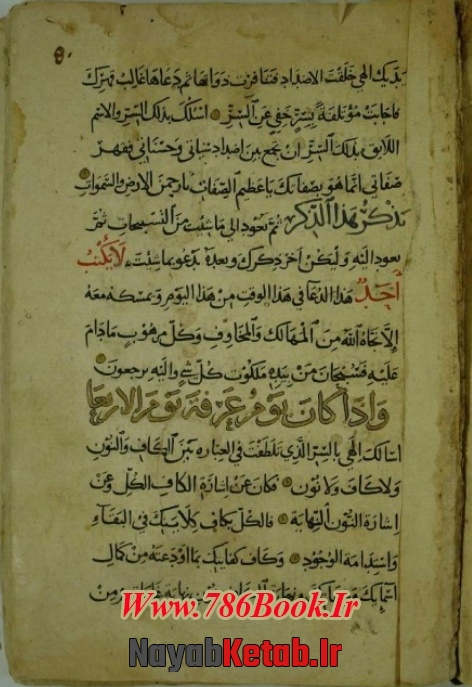 بديك الهي خلقت الاضداد فتنافرت ذواتها ثم دعاها غالب قهرك
فاجابت مؤتلفة بسر خفي عن السر اسئلك بذلك السر والاسم
اللايق بذلك السر ان تجمع بين اضداد سياتي وحسناتي فقهر
صفاتي انما هو بصفاتك يا عظيم الصفات يا رحمن الارض والسموات
تذكر بهذا الذكر ثم تعود الى ما شئت من التسبيحات ثم
يعود اليه وليكن اخر ذكرك وبعده تدعو بما شئت لا يكتب
احد هذا الدعا في هذا الوقت من هذا اليوم ويمسكه معه
الا نجاه الله من المهالك والمخاوف وكل مرهوب مادام
عليه فسبحان من بيده ملكوت كل شئ واليه ترجعون
واذا كان يوم عرفة يوم الاربعا
اسالك الهي بالسر الذي تلطفت في العباره بين الكاف والنون
ولا كاف ولا نون فكان عن اشارة الكاف الكل وعن
اشارة النون النهاية فالكل بكاف كلايتك في البقاء
واستدامة الوجود وكاف كفايتك بما اودعته من كمال
Www.786Book.Ir
NayabKetab.Ir